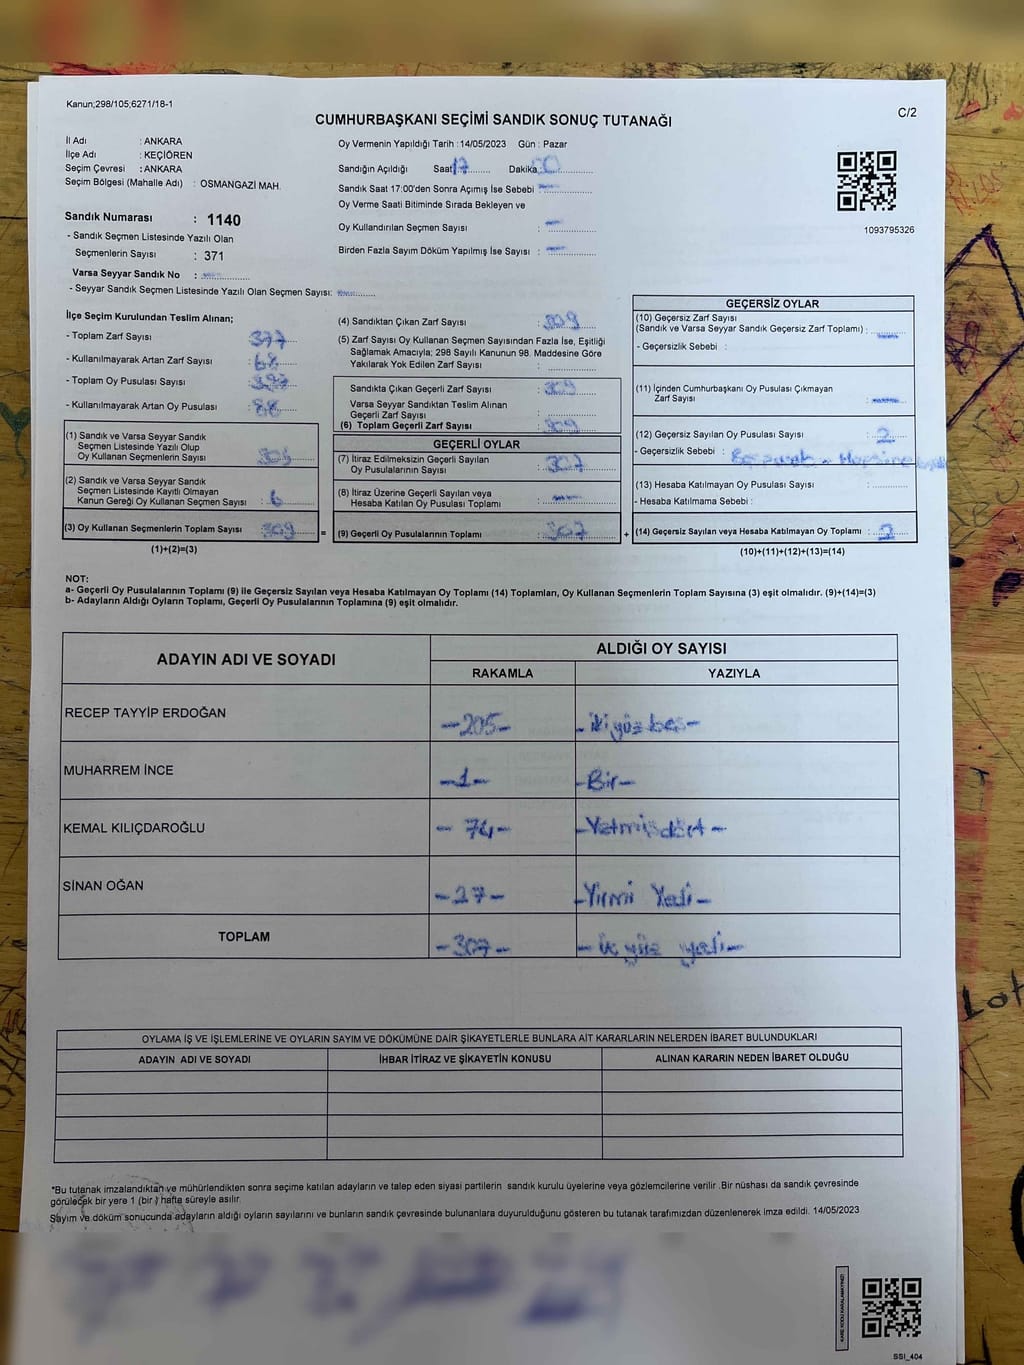 Kanun;298/105;6271/18-1
C/2
CUMHURBAŞKANI SEÇİMİ SANDIK SONUÇ TUTANAĞI
İl Adı : ANKARA
İlçe Adı : KEÇİÖREN
Seçim Çevresi : ANKARA
Seçim Bölgesi (Mahalle Adı) : OSMANGAZİ MAH.
Sandık Numarası : 1140
- Sandık Seçmen Listesinde Yazılı Olan
Seçmenlerin Sayısı : 371
Varsa Seyyar Sandık No :
- Seyyar Sandık Seçmen Listesinde Yazılı Olan Seçmen Sayısı:
Oy Vermenin Yapıldığı Tarih : 14/05/2023 Gün : Pazar
Sandığın Açıldığı Saat 17 Dakika 00
Sandık Saat 17:00'den Sonra Açımış İse Sebebi
Oy Verme Saati Bitiminde Sırada Bekleyen ve
Oy Kullandırılan Seçmen Sayısı :
Birden Fazla Sayım Döküm Yapılmış İse Sayısı :
1093795326
İlçe Seçim Kurulundan Teslim Alınan;
- Toplam Zarf Sayısı : 377
- Kullanılmayarak Artan Zarf Sayısı : 68
- Toplam Oy Pusulası Sayısı :
- Kullanılmayarak Artan Oy Pusulası :
(1) Sandık ve Varsa Seyyar Sandık
Seçmen Listesinde Yazılı Olup
Oy Kullanan Seçmenlerin Sayısı :
(2) Sandık ve Varsa Seyyar Sandık
Seçmen Listesinde Kayıtlı Olmayan
Kanun Gereği Oy Kullanan Seçmen Sayısı : 6
(3) Oy Kullanan Seçmenlerin Toplam Sayısı 309 =
(1)+(2)=(3)
(4) Sandıktan Çıkan Zarf Sayısı : 309
(5) Zarf Sayısı Oy Kullanan Seçmen Sayısından Fazla İse, Eşitliği
Sağlamak Amacıyla; 298 Sayılı Kanunun 98. Maddesine Göre
Yakılarak Yok Edilen Zarf Sayısı :
Sandıkta Çıkan Geçerli Zarf Sayısı : 309
Varsa Seyyar Sandıktan Teslim Alınan
Geçerli Zarf Sayısı :
(6) Toplam Geçerli Zarf Sayısı : 309
GEÇERLİ OYLAR
(7) İtiraz Edilmeksizin Geçerli Sayılan
Oy Pusulalarının Sayısı : 307
(8) İtiraz Üzerine Geçerli Sayılan veya
Hesaba Katılan Oy Pusulaları Toplamı :
(9) Geçerli Oy Pusulalarının Toplamı : 307 +
GEÇERSİZ OYLAR
(10) Geçersiz Zarf Sayısı
(Sandık ve Varsa Seyyar Sandık Geçersiz Zarf Toplamı) :
- Geçersizlik Sebebi :
(11) İçinden Cumhurbaşkanı Oy Pusulası Çıkmayan
Zarf Sayısı :
(12) Geçersiz Sayılan Oy Pusulası Sayısı : 2
- Geçersizlik Sebebi :
(13) Hesaba Katılmayan Oy Pusulası Sayısı :
- Hesaba Katılmama Sebebi :
(14) Geçersiz Sayılan veya Hesaba Katılmayan Oy Toplamı : 2
(10)+(11)+(12)+(13)=(14)
NOT:
a- Geçerli Oy Pusulalarının Toplamı (9) ile Geçersiz Sayılan veya Hesaba Katılmayan Oy Toplamı (14) Toplamları, Oy Kullanan Seçmenlerin Toplam Sayısına (3) eşit olmalıdır. (9)+(14)=(3)
b- Adayların Aldığı Oyların Toplamı, Geçerli Oy Pusulalarının Toplamına (9) eşit olmalıdır.
ADAYIN ADI VE SOYADI
ALDIĞI OY SAYISI
RAKAMLA YAZIYLA
RECEP TAYYİP ERDOĞAN -205- -iki yüz beş-
MUHARREM İNCE -1- -Bir-
KEMAL KILIÇDAROĞLU -74- -Yetmişdört-
SİNAN OĞAN -27- -Yirmi Yedi-
TOPLAM -307- -üç yüz yedi-
OYLAMA İŞ VE İŞLEMLERİNE VE OYLARIN SAYIM VE DÖKÜMÜNE DAİR ŞİKAYETLERLE BUNLARA AİT KARARLARIN NELERDEN İBARET BULUNDUKLARI
ADAYIN ADI VE SOYADI İHBAR İTİRAZ VE ŞİKAYETİN KONUSU ALINAN KARARIN NEDEN İBARET OLDUĞU
*Bu tutanak imzalandıktan ve mühürlendikten sonra seçime katılan adayların ve talep eden siyasi partilerin sandık kurulu üyelerine veya gözlemcilerine verilir .Bir nüshası da sandık çevresinde
görülecek bir yere 1 (bir ) hafta süreyle asılır.
Sayım ve döküm sonucunda adayların aldığı oyların sayılarını ve bunların sandık çevresinde bulunanlara duyurulduğunu gösteren bu tutanak tarafımızdan düzenlenerek imza edildi. 14/05/2023
KARE KODU KARALAMAYINIZ!
SSI_404